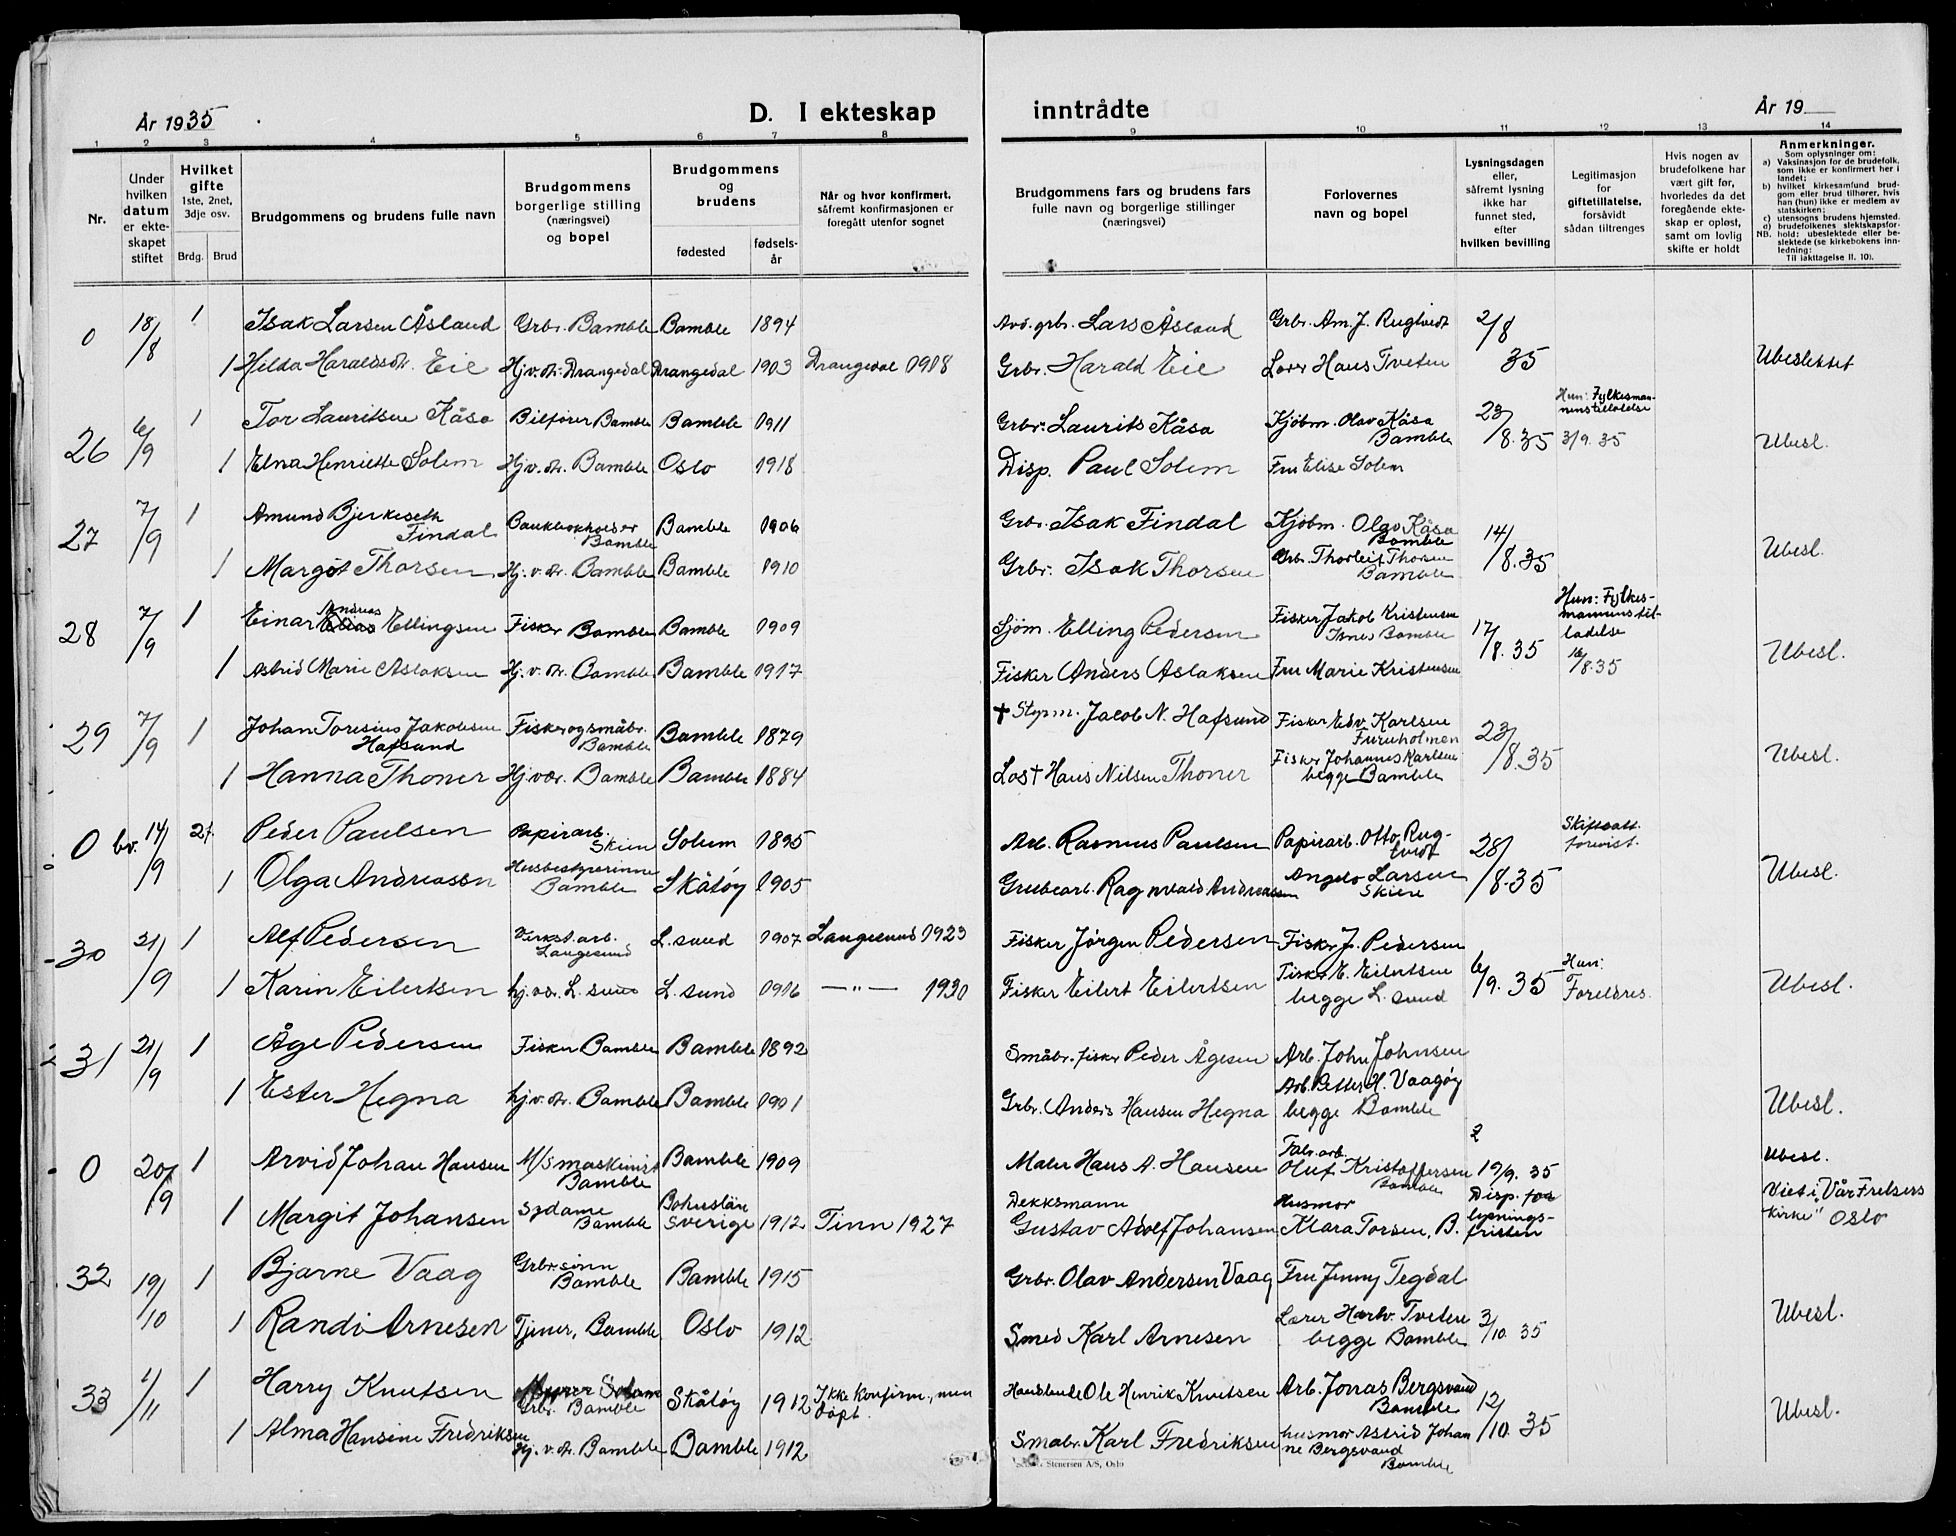 År 1935
D. I ekteskap
inntrådte
År 19
1 2 3 4 5 6 7 8 9 10 11 12 13 14
Nr.
Under
hvilken
datum
er ekte-
skapet
stiftet
Hvilket
gifte
1ste, 2net,
3dje osv.
Brdg. Brud
Brudgommens og brudens fulle navn
Brudgommens
borgerlige stilling
(næringsvei)
og bopel
Brudgommens
og
brudens
fødested
fødsels-
år
Når og hvor konfirmert,
såfremt konfirmasjonen er
foregått utenfor sognet
Brudgommens fars og brudens fars
fulle navn og borgerlige stillinger
(næringsvei)
Forlovernes
navn og bopel
Lysningsdagen
eller,
såfremt lysning
ikke har
funnet sted,
efter
hvilken bevilling
Legitimasjon
for
giftetillatelse,
forsåvidt
sådan tiltrenges
Hvis nogen av
brudefolkene har
vært gift før,
hvorledes da det
foregående ekte-
skap er opløst,
samt om lovlig
skifte er holdt
Anmerkninger.
Som oplysninger om:
a) Vaksinasjon for de brudefolk,
som ikke er konfirmert her i
landet;
b) hvilket kirkesamfund brud-
gom eller brud tilhører, hvis
han (hun) ikke er medlem av
statskirken;
c) utensogns brudens hjemsted.
d) brudefolkenes slektskapsfor-
NB. hold: ubeslektede eller be-
slektede (se kirkebokens inn-
ledning:
Til iakttagelse II. 10).
0 18/8 1 Isak Larsen Åsland Grbr. Bamble Bamble 1894 Avd. grbr. Lars Åsland Grbr. Am. J. Rugtvedt 2/8
1 Hilda Haraldsdtr. Eie Hj.v.dr. Drangedal Drangedal 1903 Drangedal 1918 Grbr. Harald Eie Lærer Hans Tveten 35 Ubeslektet
26 6/9 1 Tor Lauritsen Kåsa Bilfører Bamble Bamble 1911 Grbr. Laurits Kåsa Kjøbm. Olav Kåsa Bamble 23/8.35 Hun: Fylkesman-
nens tillatelse
3/9.35
1 Elna Henriette Solem Hj.v.dr. Bamble Oslo 1918 Disp. Paul Solem Fru Elise Solem Ubesl.
27 7/9 1 Amund Bjerkeseth
Findal Bankbokholder
Bamble Bamble 1906 Grbr. Isak Findal Kjøbm. Olav Kåsa
Bamble 14/8.35
1 Margit Thorsen Hj.v.dr. Bamble Bamble 1910 Grbr. Isak Thorsen Grbr. Thorleif Thorsen
Bamble Ubesl.
28 7/9 1 Einar Andreas Ellingsen Fisker Bamble Bamble 1909 Sjøm. Elling Pedersen Fisker Jakob Kristensen
Bamble 17/8.35 Hun: Fylkes-
mannens til-
ladelse
16/8.35
1 Astrid Marie Aslaksen Hj.v.dr. Bamble Bamble 1917 Fisker Anders Aslaksen Fru Marie Kristensen Ubesl.
29 7/9 1 Johan Toresius Jakobsen
Hafsund Fisker og småbr.
Bamble Bamble 1879 † Styrm. Jacob N. Hafsund Fisker Edv. Karlsen
Furuholmen 23/8.35
1 Hanna Thoner Hj.vær. Bamble Bamble 1884 Los † Hans Nilsen Thoner Fisker Johannes Karlsen
begge Bamble Ubesl.
0 bv. 14/9 2. Peder Paulsen Papirarb.
Skien Solum 1895 Arb. Rasmus Paulsen Papirarb. Otto Rug-
tvedt 28/8.35 Skifteatt.
forevist.
1 Olga Andreassen Husbestyrerinne
Bamble Skåtøy 1905 Grubearb. Ragnvald Andreassen Angelo Larsen
Skien Ubesl.
30 21/9 1 Alf Pedersen Verkst.arb.
Langesund L.sund 1907 Langesund 1923 Fisker Jørgen Pedersen Fisker J. Pedersen 6/9.35 Hun:
Foreldres.
1 Karin Eilertsen hj.vær. L.sund L.sund 1916 —"— 1930 Fisker Eilert Eilertsen Fisker E. Eilertsen
begge L.sund Ubesl.
31 21/9 1 Åge Pedersen Fisker Bamble Bamble 1892 Småbr. fisker Peder Ågesen Arb. John Johnsen
1 Ester Hegna hj.v.dr. Bamble Bamble 1901 Grbr. Anders Hansen Hegna Arb. Petter H. Vaagøy
begge Bamble Ubesl.
0 20/9 1 Arvid Johan Hansen M/S maskinist
Bamble Bamble 1909 Maler Hans A. Hansen Fabr.arb.
Oluf Kristoffersen
Bamble 19/9.35 Ubesl.
1 Margit Johansen Sydame
Bamble Bohuslän
Sverige 1912 Tinn 1927 Dekksmann
Gustav Adolf Johansen Husmor
Klara Torsen, B. Disp. for
lysnings-
fristen Viet i "Vår Frelsers
kirke" Oslo
32 19/10 1 Bjarne Vaag Grbr.sønn
Bamble Bamble 1915 Grbr. Olav Andersen Vaag Fru Jenny Tegdal
1 Randi Arnesen Tjener, Bamble Oslo 1912 Smed Karl Arnesen Lærer Hartv. Tveten
begge Bamble 3/10.35 Ubesl.
33 2/11 1 Harry Knutsen Grbr. Bamble Skåtøy 1912 Ikke konfirm., men
døpt. Handlende Ole Henrik Knutsen Arb. Jonas Bergsvand
Bamble 12/10.35
1 Alma Hansine Fredriksen Hj.v.dr. Bamble Bamble 1912 Småbr. Karl Fredriksen husmor Astrid Johan
ne Bergsvand
Bamble Ubesl.
Stenersen A/S, Oslo